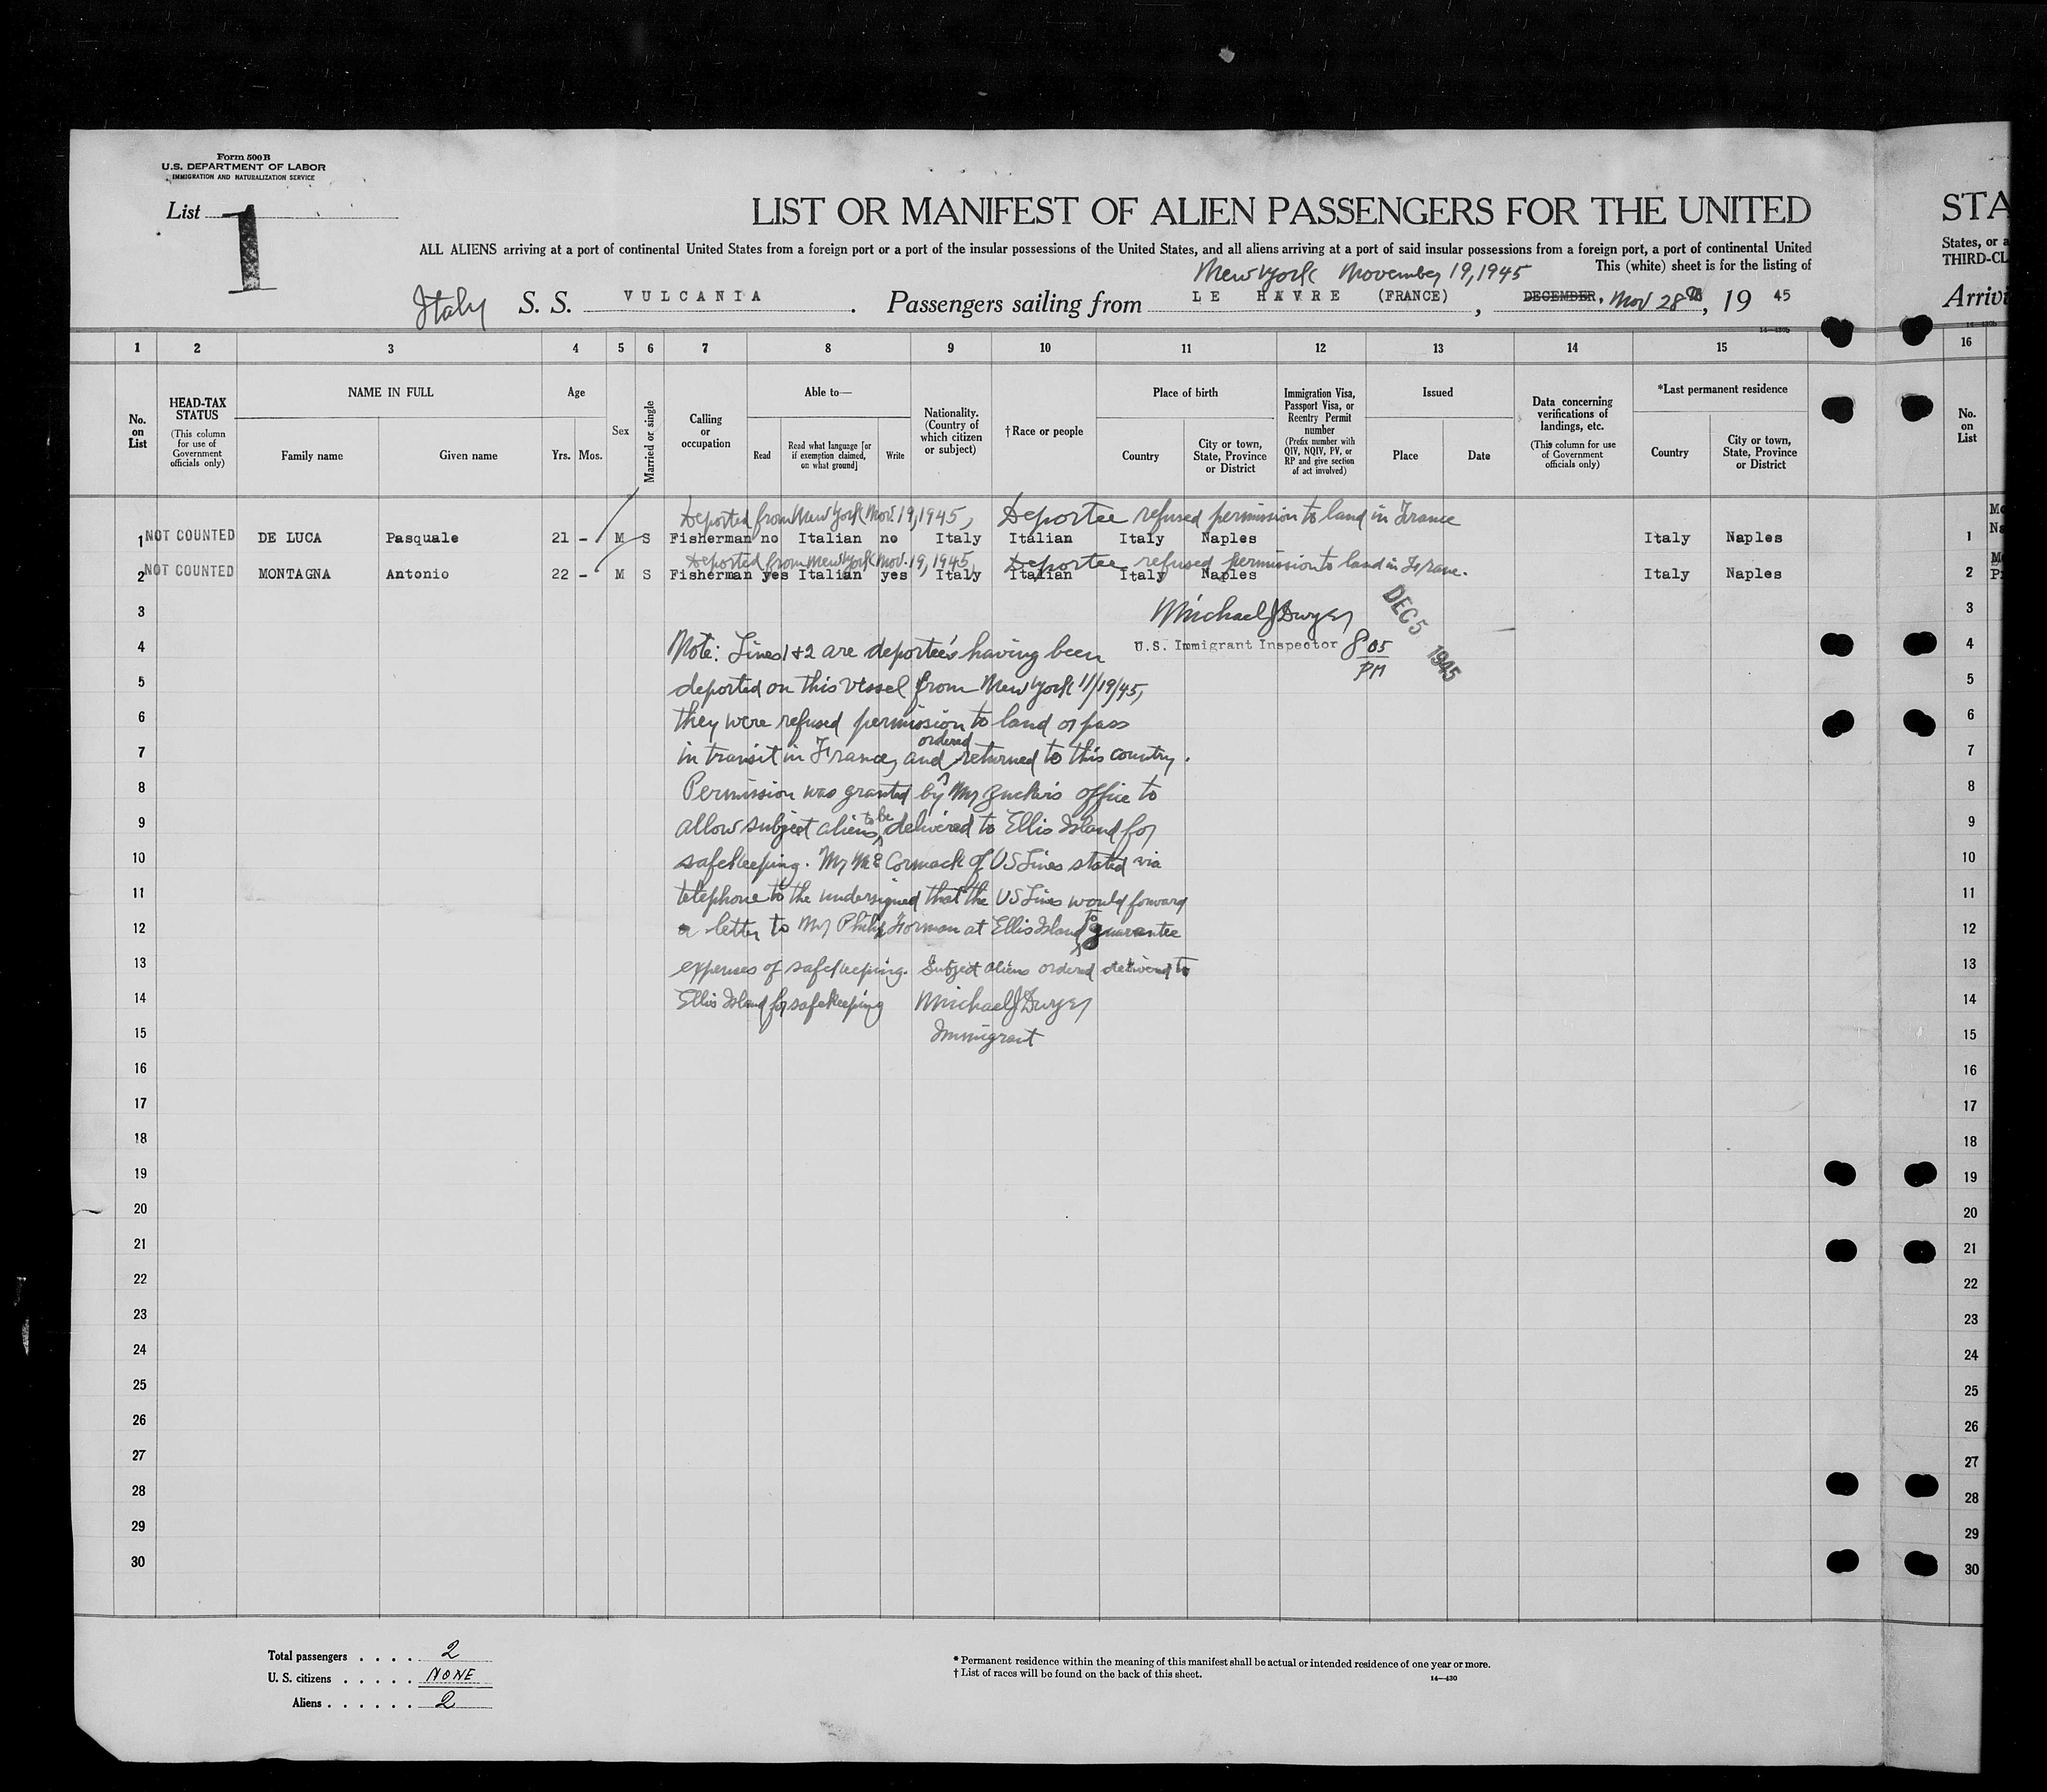 Form 500 B
U.S. DEPARTMENT OF LABOR
IMMIGRATION AND NATURALIZATION SERVICE
List 1
LIST OR MANIFEST OF ALIEN PASSENGERS FOR THE UNITED
STA
ALL ALIENS arriving at a port of continental United States from a foreign port or a port of the insular possessions of the United States, and all aliens arriving at a port of said insular possessions from a foreign port, a port of continental United
States, or a
This (white) sheet is for the listing of
THIRD-CL
New York November 19, 1945
Italy S. S. VULCANIA . Passengers sailing from LE HAVRE (FRANCE) , DECEMBER, Nov 28th, 19 45
Arrivi
14—430b
14—430b
1 2 3 4 5 6 7 8 9 10 11 12 13 14 15 16
No. on List
HEAD-TAX STATUS
(This column for use of Government officials only)
NAME IN FULL
Family name
Given name
Age
Yrs. Mos.
Sex
Married or single
Calling or occupation
Able to—
Read
Read what language [or if exemption claimed, on what ground]
Write
Nationality. (Country of which citizen or subject)
†Race or people
Place of birth
Country
City or town, State, Province or District
Immigration Visa, Passport Visa, or Reentry Permit number
(Prefix number with QIV, NQIV, PV, or RP and give section of act involved)
Issued
Place
Date
Data concerning verifications of landings, etc.
(This column for use of Government officials only)
*Last permanent residence
Country
City or town, State, Province or District
No. on List
Deported from New York Nov. 19, 1945, Deportee refused permission to land in France
1 NOT COUNTED DE LUCA Pasquale 21 - M S Fisherman no Italian no Italy Italian Italy Naples Italy Naples 1
Deported from New York Nov. 19, 1945, Deportee refused permission to land in France.
2 NOT COUNTED MONTAGNA Antonio 22 - M S Fisherman yes Italian yes Italy Italian Italy Naples Italy Naples 2
Michael J Dwyer
U.S. Immigrant Inspector 8 05 PM
DEC 5 1945
Note: Lines 1 & 2 are deportee's having been
deported on this vessel from New York 11/19/45,
they were refused permission to land or pass
in transit in France, and ordered returned to this country.
Permission was granted by Mr Zucker's office to
allow subject aliens to be delivered to Ellis Island for
safekeeping. Mr McCormack of US Lines stated via
telephone to the undersigned that the US Lines would forward
a letter to Mr Philip Forman at Ellis Island to guarantee
expenses of safekeeping. Subject aliens ordered delivered to
Ellis Island for safekeeping Michael J Dwyer
Immigrant
3 3
4 4
5 5
6 6
7 7
8 8
9 9
10 10
11 11
12 12
13 13
14 14
15 15
16 16
17 17
18 18
19 19
20 20
21 21
22 22
23 23
24 24
25 25
26 26
27 27
28 28
29 29
30 30
Total passengers . . . . 2
U. S. citizens . . . . . NONE
Aliens . . . . . . 2
* Permanent residence within the meaning of this manifest shall be actual or intended residence of one year or more.
† List of races will be found on the back of this sheet.
14—430